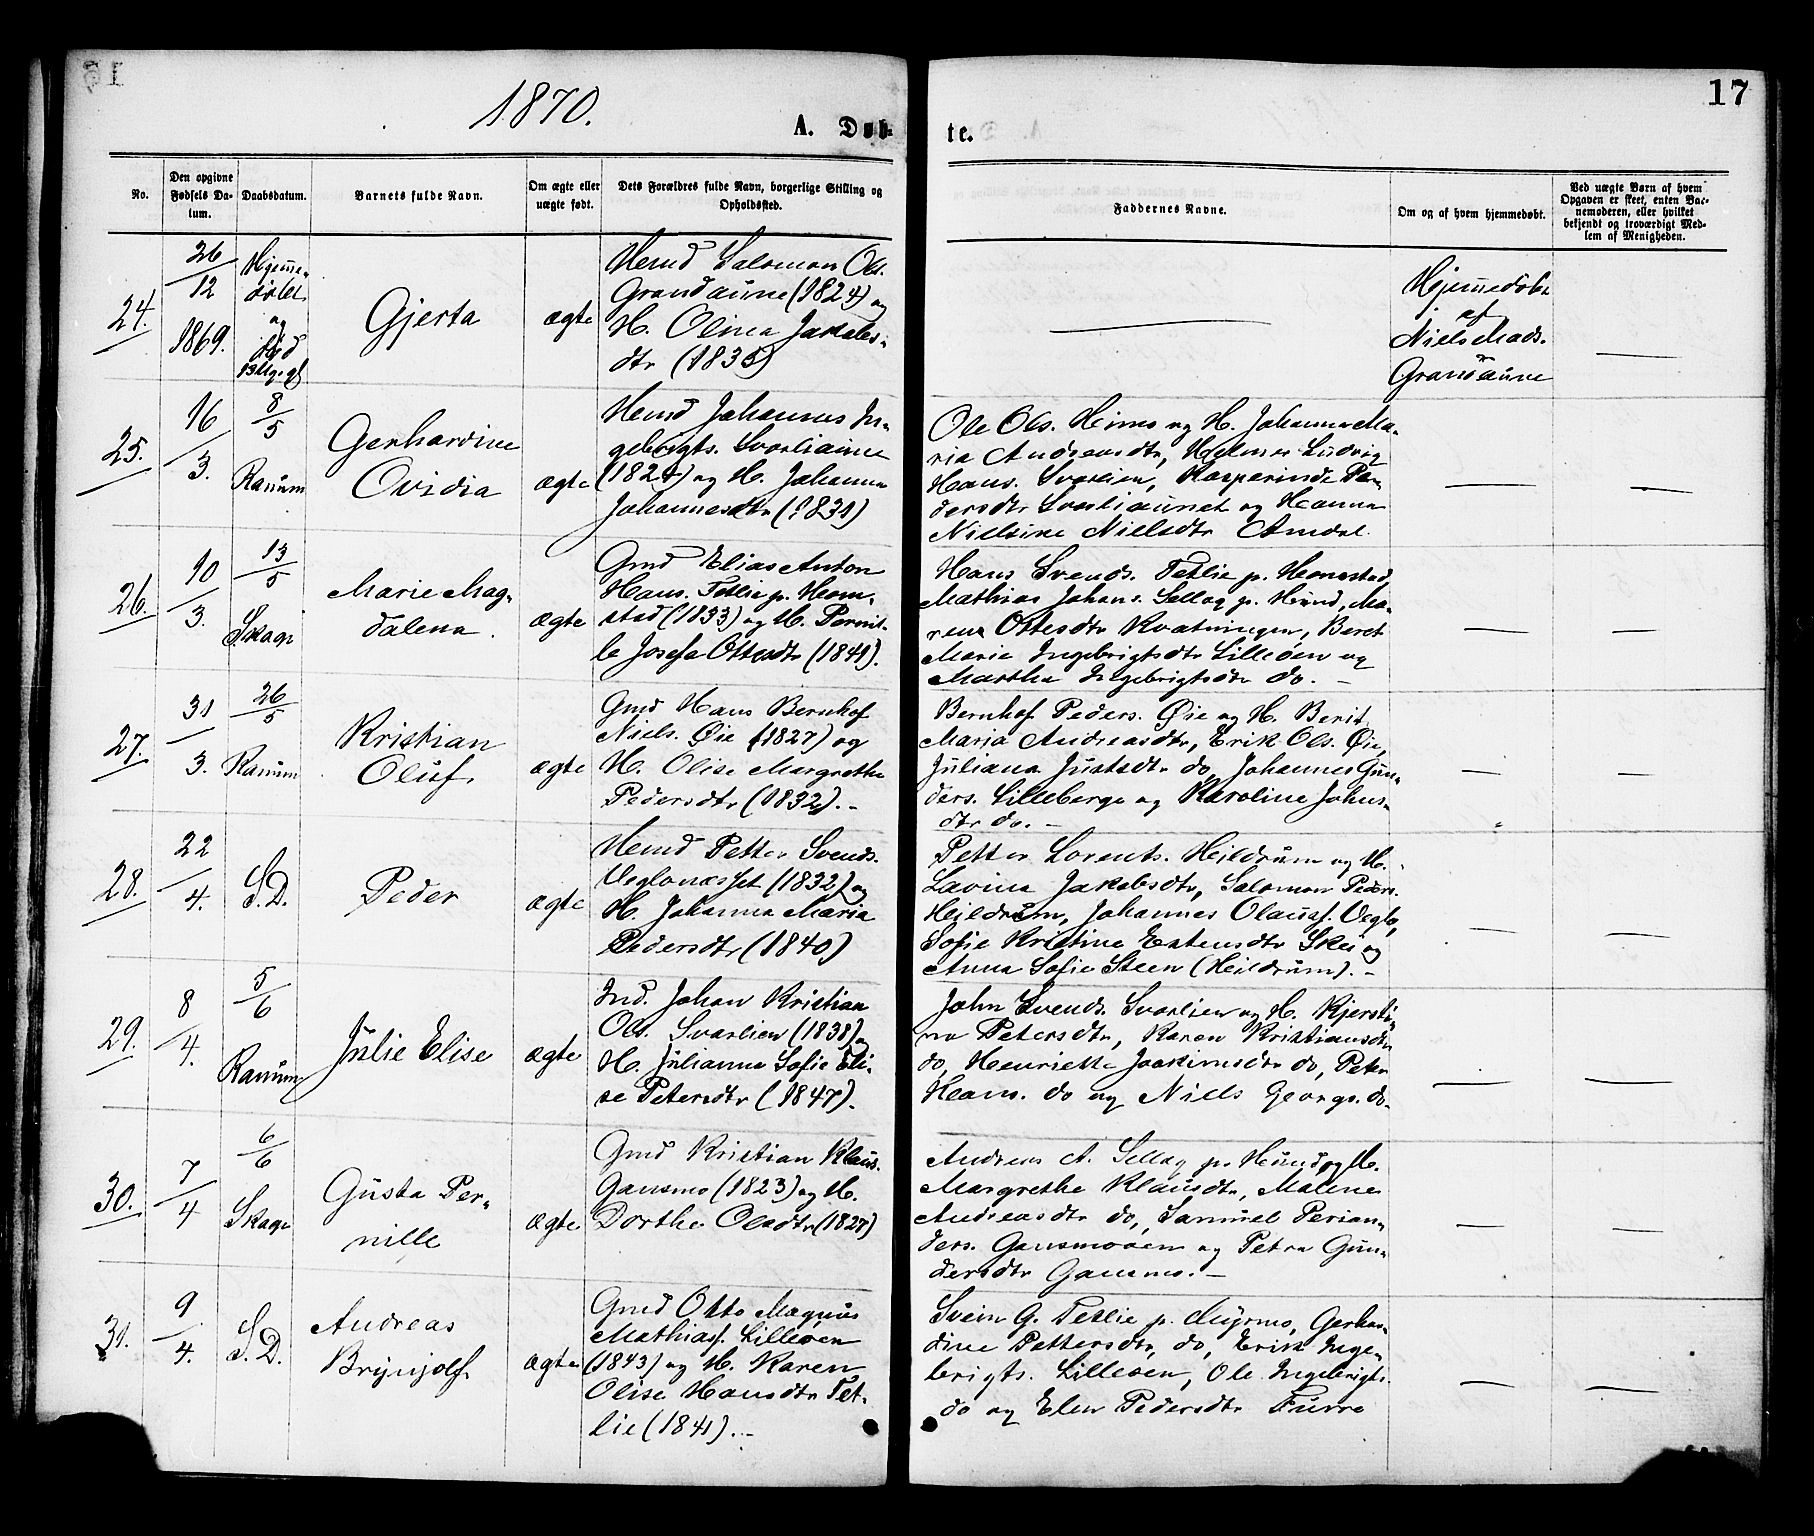 1870.
A. Døb-
te.
17
No.
Den opgivne Fødsels Da-
tum.
Daabsdatum.
Barnets fulde Navn.
Om ægte eller
uægte født.
Dets Forældres fulde Navn, borgerlige Stilling og
Opholdssted.
Faddernes Navne.
Om og af hvem hjemmedøbt.
Ved uægte Børn af hvem
Opgaven er skeet, enten Bar-
nemoderen, eller hvilket
bekjendt og troværdigt Med-
lem af Menigheden.
24.
26/12
1869.
Hjemme-
døbt
og
død
Gjerta
ægte
Hmd Salomon Ols.
Grandaune (1824) og
H. Olina Jakobs-
dtr (1835)
Hjemmedøbt
af
Niels Mads.
Grandaune
25.
16/3.
8/5
Ranum
Gerhardine
Ovidia
ægte
Hmd Johannes In-
gebrigts. Svarliaune
(1824) og H. Johanna
Johannesdtr (1831)
Ole Ols. Heimo og H. Johanna Ma-
ria Andreasdtr, Helmer Ludvig
Hans. Svarlien, Kasperinde Pe-
dersdtr Svarliaunet og Hanna
Nielsine Nielsdtr Amdal.
26.
10/3.
13/5
Skage
Marie Mag-
dalena.
ægte
Gmd Elias Anton
Hans. Tetlie p. Hom-
stad (1833) og H. Pernil-
le Josefa Ottesdtr (1841).
Hans Svends. Tetlie p. Homstad,
Mathias Johans. Sellæg p. Hund, Ma-
ren Ottesdtr Kvatningen, Beret
Marie Ingebrigtsdtr Lilleøen og
Martha Ingebrigtsdtr do. -
27.
31/3.
26/5
Ranum
Kristian
Oluf.
ægte
Gmd Hans Bernhof
Niels. Øie (1827) og
H. Olise Margrethe
Pedersdtr (1832). -
Bernhof Peders. Øie og H. Berit
Maria Andreasdtr, Erik Ols. Øie,
Juliana Justsdtr do, Johannes Gun-
ders. Lilleberge og Karoline Johns-
dtr do. -
28.
22/4.
S.D.
Peder
ægte
Hmd Petter Svends.
Veglonæsset (1832) og
H. Johanna Maria
Pedersdtr (1840)
Petter Lorents. Heildrum og H.
Lavina Jakobsdtr, Salomon Peders.
Heildrum, Johannes Olausf. Veglo,
Sofie Kristine Estensdtr Skei og
Anna Sofie Steen (Heildrum). -
29.
8/4.
5/6
Ranum
Julie Elise
ægte
Ind. Johan Kristian
Ols. Svarlien (1838) og
H. Julianna Sofie Eli-
se Petersdtr (1847).
John Svends. Svarlien og H. Kjersti-
na Petersdtr, Karen Kristiansdtr
do, Henriette Joakimsdtr do, Peter
Hans. do og Niels Georgs. do.
30.
7/4
6/6
Skage
Gusta Per-
nille
ægte
Gmd Kristian Klaus.
Gansmo (1823) og H.
Dorthe Olsdtr (1827)
Andreas A. Sellæg p. Hund og H.
Margrethe Klausdtr, Malene
Andreasdtr do, Samuel Perian-
ders. Gansmoøen og Petra Gun-
dersdtr Gansmo. -
31.
9/4.
S.D.
Andreas
Brynjolf.
ægte
Gmd Otto Magnus
Mathiasf. Lilleøen
(1843) og H. Karen
Olise Hansdtr Tet-
lie (1841). -
Svein G. Tetlie p. Myrmo, Gerhar-
dine Pettersdtr, do, Erik Inge-
brigts. Lilleøen, Ole Ingebrigts.
do og Elen Pedersdtr Furre